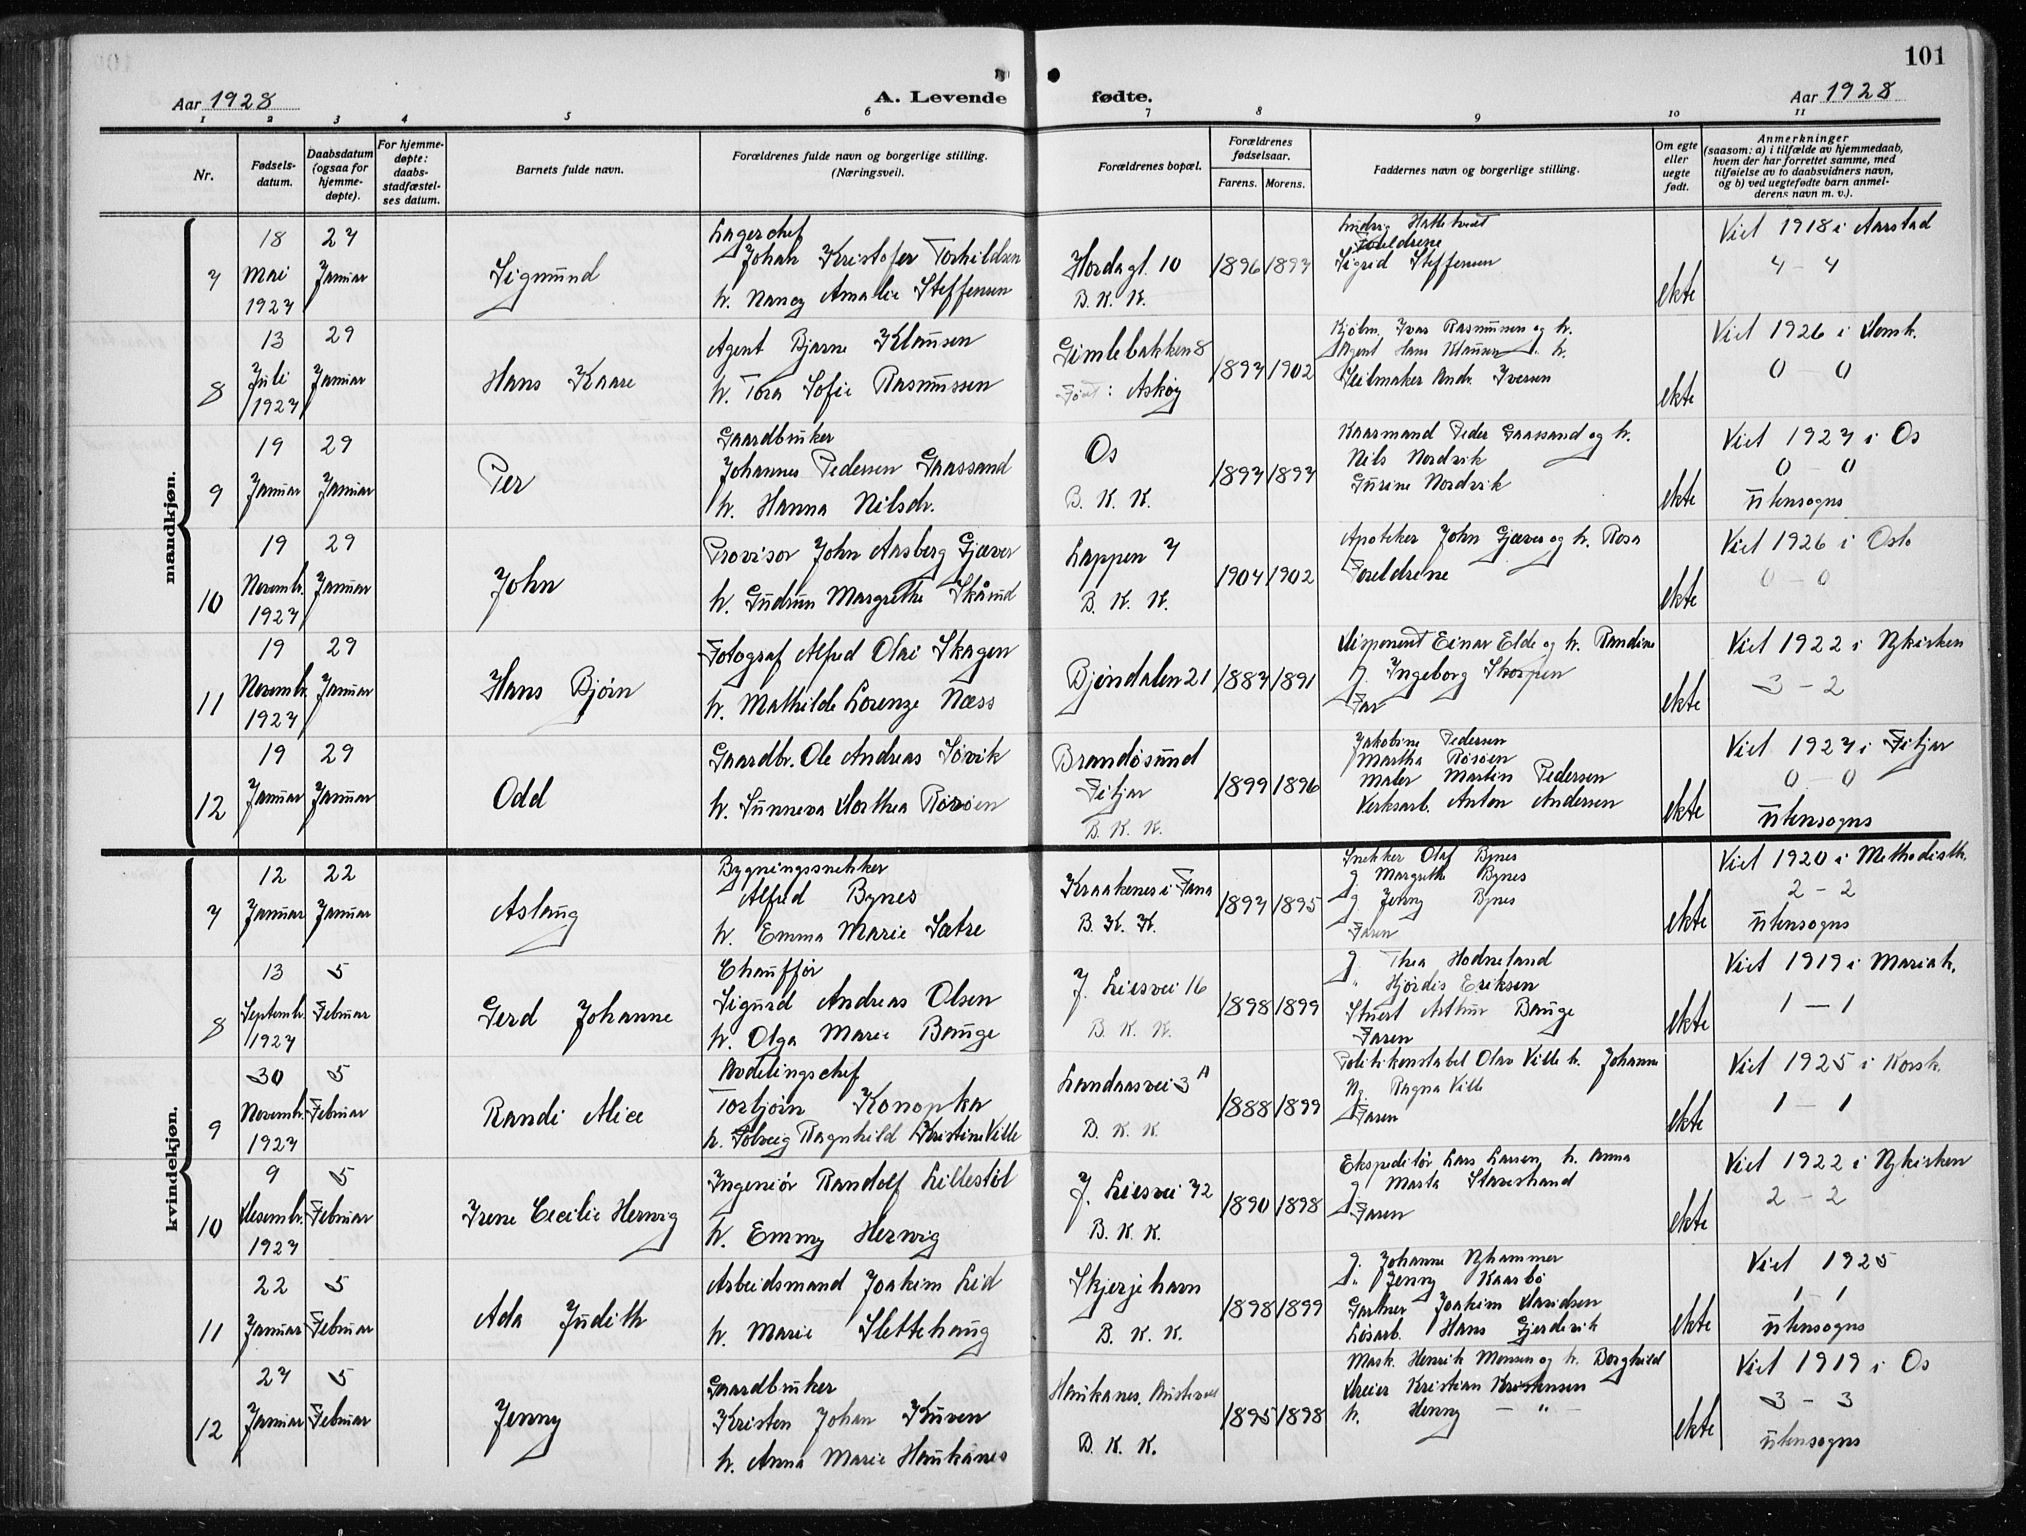 101
Aar 1928
A. Levende fødte.
Aar 1928
1 2 3 4 5 6 7 8 9 10 11
Nr.
Fødsels-
datum.
Daabsdatum
(ogsaa for
hjemme-
døpte).
For hjemme-
døpte:
daabs-
stadfæstel-
ses datum.
Barnets fulde navn.
Forældrenes fulde navn og borgerlige stilling.
(Næringsvei).
Forældrenes bopæl.
Forældrenes
fødselsaar.
Farens. Morens.
Faddernes navn og borgerlige stilling.
Om egte
eller
uegte
født.
Anmerkninger
(saasom: a) i tilfælde av hjemmedaab,
hvem der har forrettet samme, med
tilføielse av to daabsvidners navn,
og b) ved uegtefødte barn anmel-
derens navn m. v.).
mandkjøn.
7
18
Mai
1927
27
Januar
Sigmund
Lagerchef
Johan Kristofer Torkildsen
h. Nancy Amalie Steffensen
Hordagt. 10
B. K. K.
1896 1897
Ludvig Hattehvedt
Foreldrene
Sigrid Steffensen
ekte
Viet 1918 i Aarstad
4 - 4
8
13
Juli
1927
29
Januar
Hans Kaare
Agent Bjarne Klausen
h. Tora Sofie Rasmussen
Gimlebakken 8
Født: Askøy
1897 1902
Kjøbm. Ivar Rasmussen og h.
Agent Hans Klausen " h.
Seilmaker Andr. Iversen
ekte
Viet 1926 i Domk.
0 - 0
9
19
Januar
29
Januar
Per
Gaardbruker
Johannes Pedersen Gaassand
h. Hanna Nilsdr.
Os
B. K. K.
1897 1897
Kaarmand Peder Gaassand og h.
Nils Nordvik
Gurine Nordvik
ekte
Viet 1927 i Os
0 - 0
utensogns
10
19
Novembr.
1927
29
Januar
John
Provisor John Aasberg Gjæver
h. Gudrun Margrethe Skåund
Lappen 7
B. K. K.
1904 1902
Apoteker John Gjæver og h. Rosa
Foreldrene
ekte
Viet 1926 i Oslo
0 - 0
11
19
Novembr.
1927
29
Januar
Hans Bjørn
Fotograf Alfred Olai Skagen
h. Mathilde Lorenze Næss
Bjøndalen 21
1887 1891
Disponent Einar Elde og h. Randine
g. Ingeborg Skorpen
Far
ekte
Viet 1922 i Nykirken
3 - 2
12
19
Januar
29
Januar
Odd
Gaardbr. Ole Andreas Søvik
h. Sunneva Dorthea Rorøen
Brandøsund
Fitjar
B. K. K.
1899 1896
Jakobine Pedersen
Martha Rorøen
Maler Martin Pedersen
Verksarb. Anton Andersen
ekte
Viet 1927 i Fitjar
0 - 0
utensogns
kvindekjøn.
7
12
Januar
22
Januar
Aslaug
Bygningssnekker
Alfred Bynes
h. Emma Marie Sætre
Kraakenes i Fana
B. K. K.
1897 1895
Snekker Olaf Bynes
g. Margrethe Bynes
g. Jenny Bynes
Faren
ekte
Viet 1920 i Methodistk.
2 - 2
utensogns
8
13
Septembr.
1927
5
Februar
Gerd Johanne
Chauffør
Sigurd Andreas Olsen
h. Olga Marie Bauge
J. Liesvei 16
B. K. K.
1898 1899
g. Thea Hodneland
" Hjørdis Eriksen
Stuert Arthur Bauge
Faren
ekte
Viet 1919 i Mariak.
1 - 1
9
30
Novembr.
1927
5
Februar
Randi Alice
Avdelingschef
Torbjørn Konopka
h. Solveig Ragnhild Kristine Ville
Landaasvei 3 A
B. K. K.
1888 1899
Politikonstabel Olav Ville h. Johanne
Ragna Ville
Faren
ekte
Viet 1925 i Korsk.
1 - 1
10
9
Desembr.
1927
5
Februar
Irene Cecilie Herwig
Ingeniør Randolf Lillestøl
h. Emmy Herwig
J. Liesvei 72
B. K. K.
1890 1898
Ekspeditør Lars Larsen h. Anna
g. Marta Stavestrand
Faren
ekte
Viet 1922 i Nykirken
2 - 2
11
22
Januar
5
Februar
Ada Judith
Arbeidsmand Joakim Lid
h. Marie Slettehaug
Skjerjehavn
B. K. K.
1898 1899
g. Johanne Nyhammer
" Jenny Kaarbø
Gartner Joakim Davidsen
Løsarb. Hans Gjerdevik
ekte
Viet 1925
1 - 1
utensogns
12
27
Januar
5
Februar
Jenny
Gaardbruker
Kristen Johan Kuven
h. Anna Marie Haukanes
Haukanes,
B. K. K.
1895 1898
Mask. Henrik Monsen og h. Borghild
Dreier Kristian Kristensen
h. Henny - " -
ekte
Viet 1919 i Os
3 - 3
utensogns